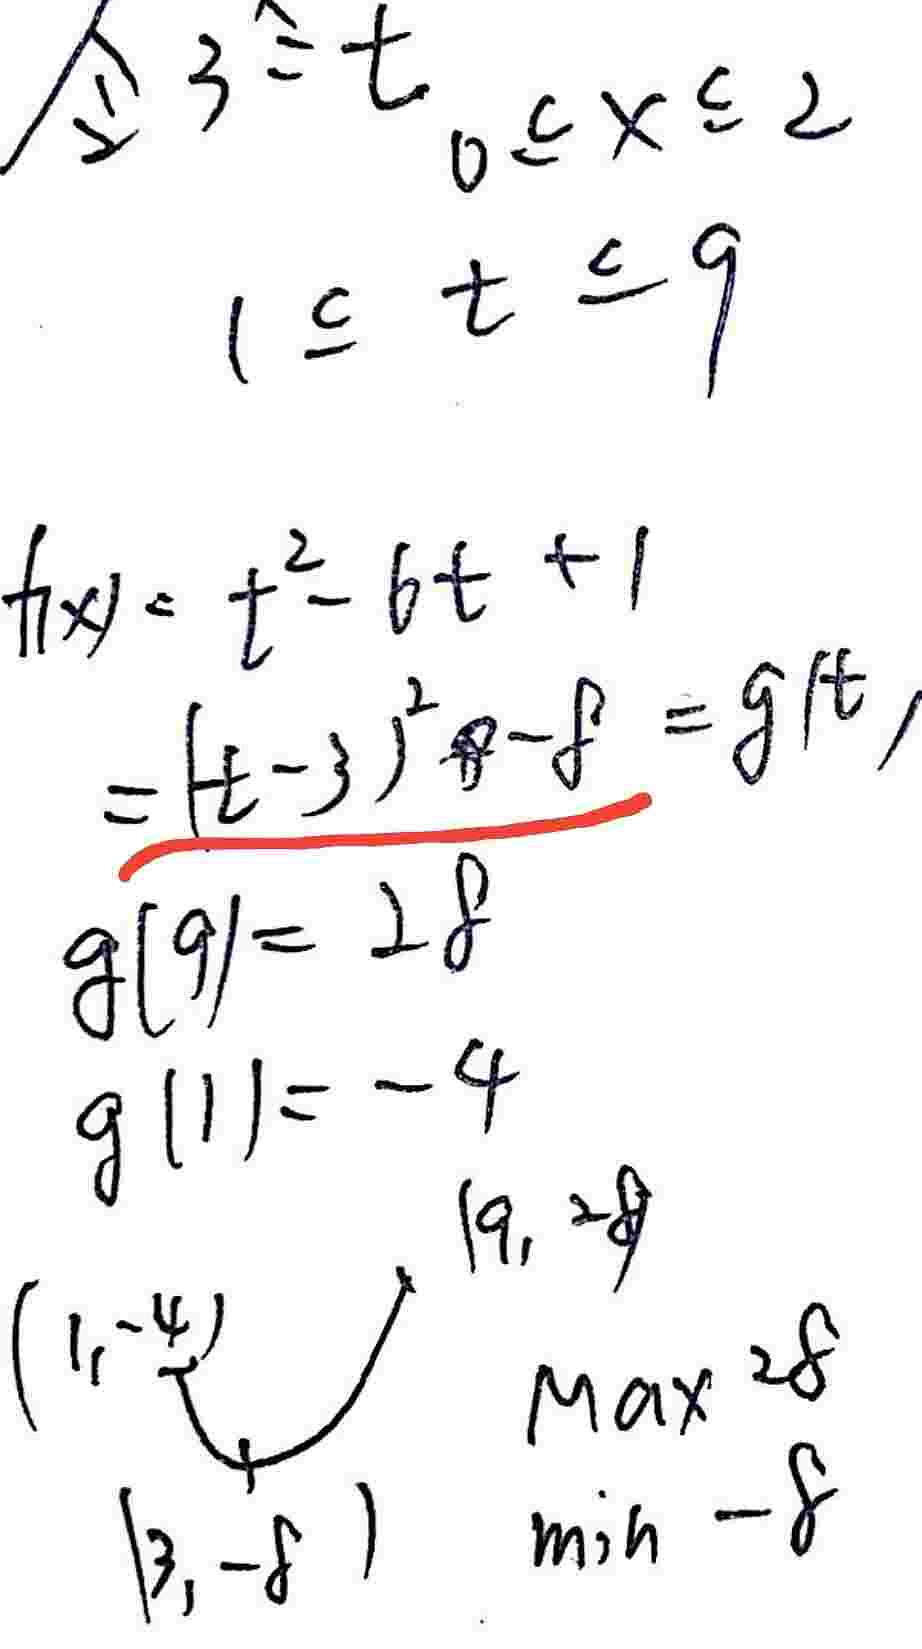 令 3^x = t
0 ≤ x ≤ 2
1 ≤ t ≤ 9
f(x) = t² - 6t + 1
= (t-3)² - 8 = g(t)
g(9) = 28
g(1) = -4
(9, 28)
(1, -4)
Max 28
min -8
(3, -8)